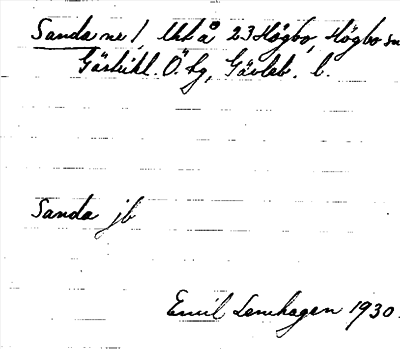 Sanda ne /, Ukt å 23 Högbo, Högbo sn
Gästrikl. Ö. tg, Gävleb. l.
Sanda jb
Emil Lenhagen 1930.